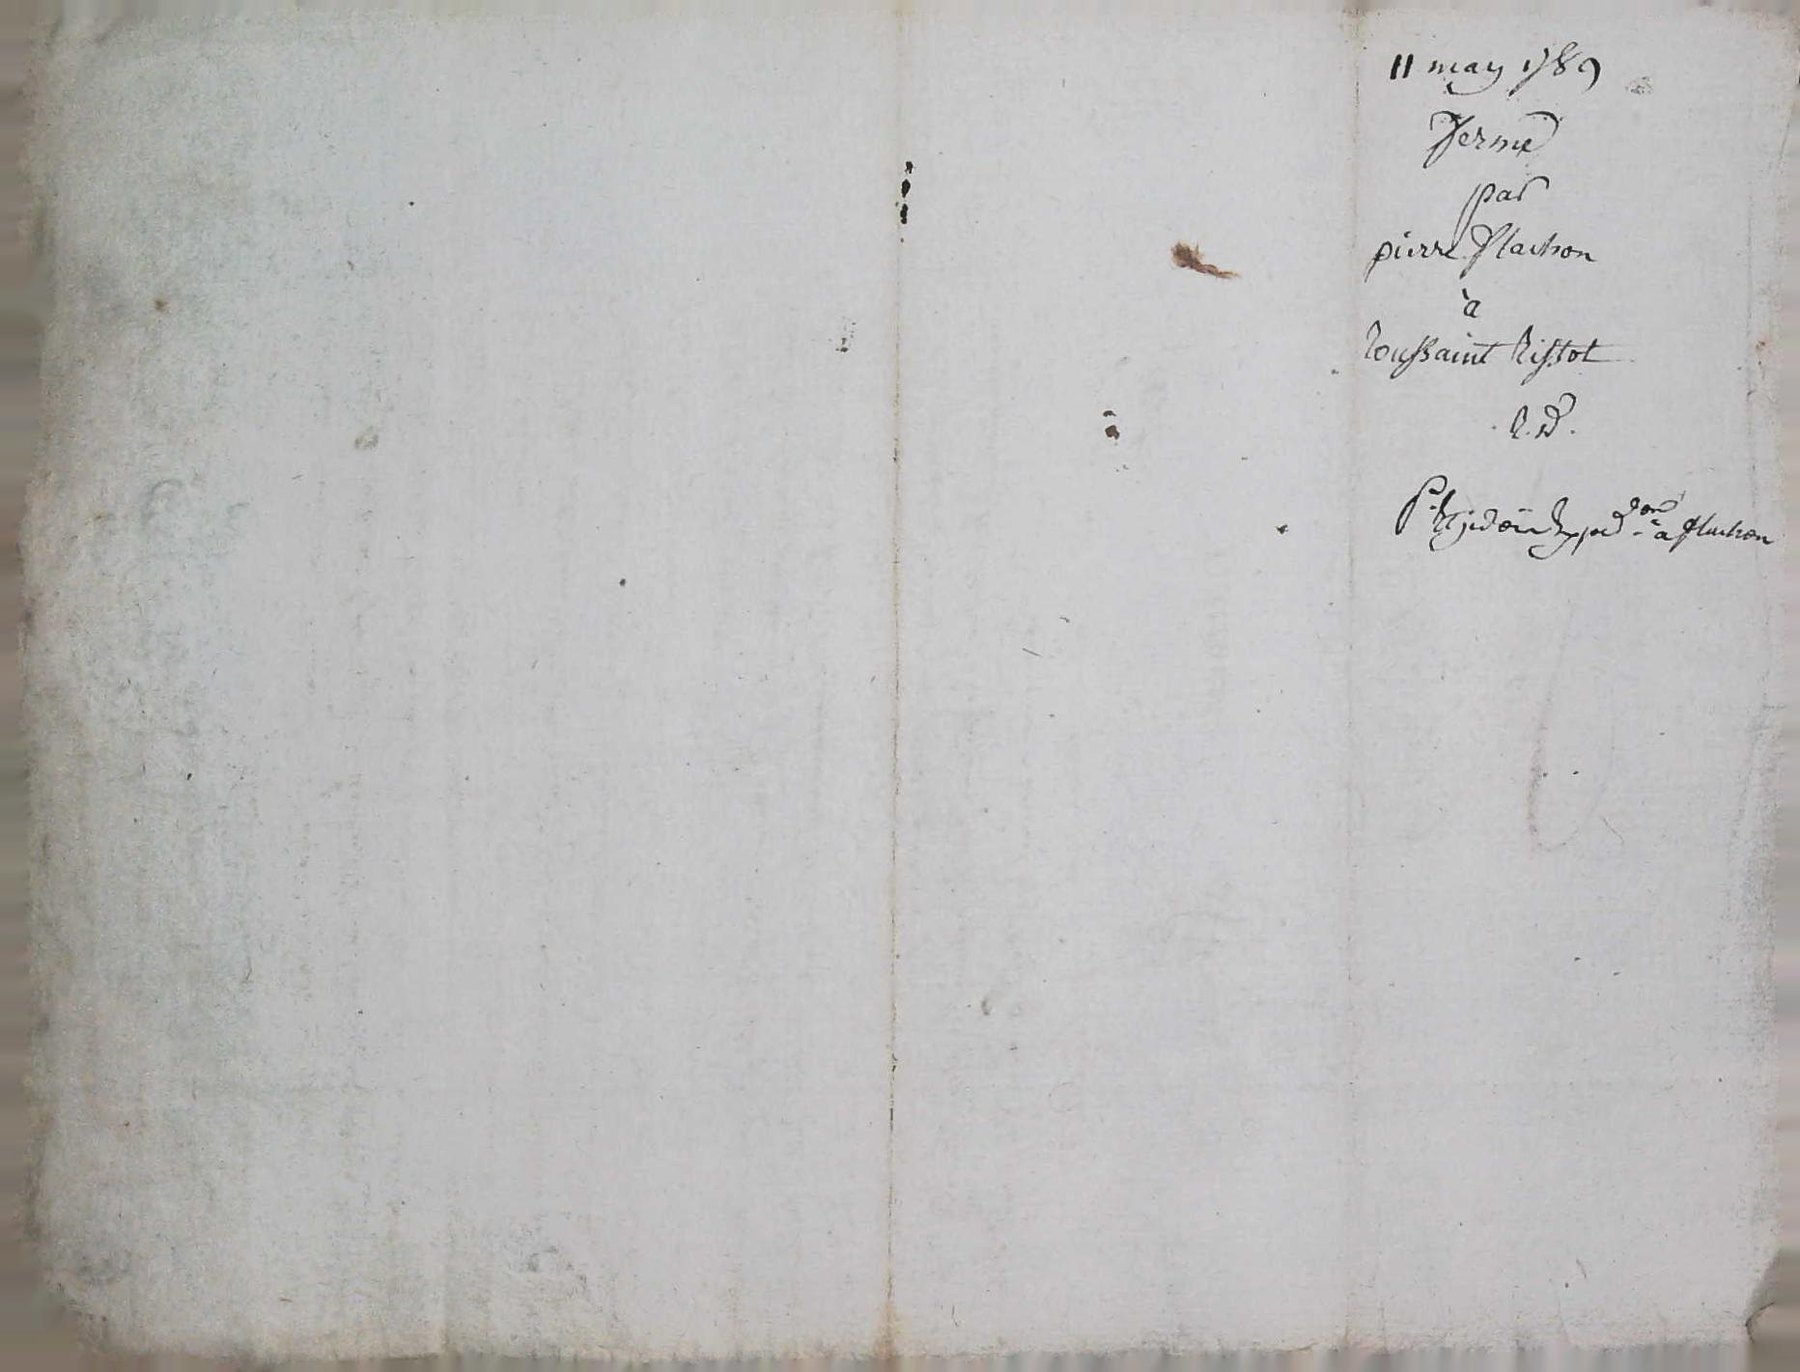 11 may 1789
ferme
par
pierre flachon
à
toussaint tissot
à flachon